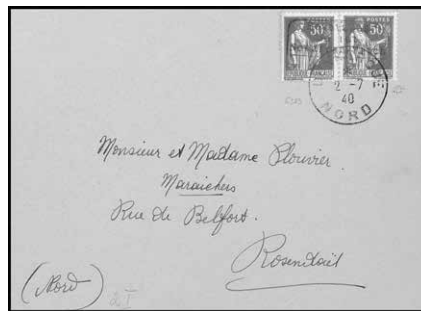 POSTES
50c 50c
2-7
40
NORD
Monsieur et Madame Plouvier.
Maraichers
Rue de Belfort.
Rosendaël
(Nord)